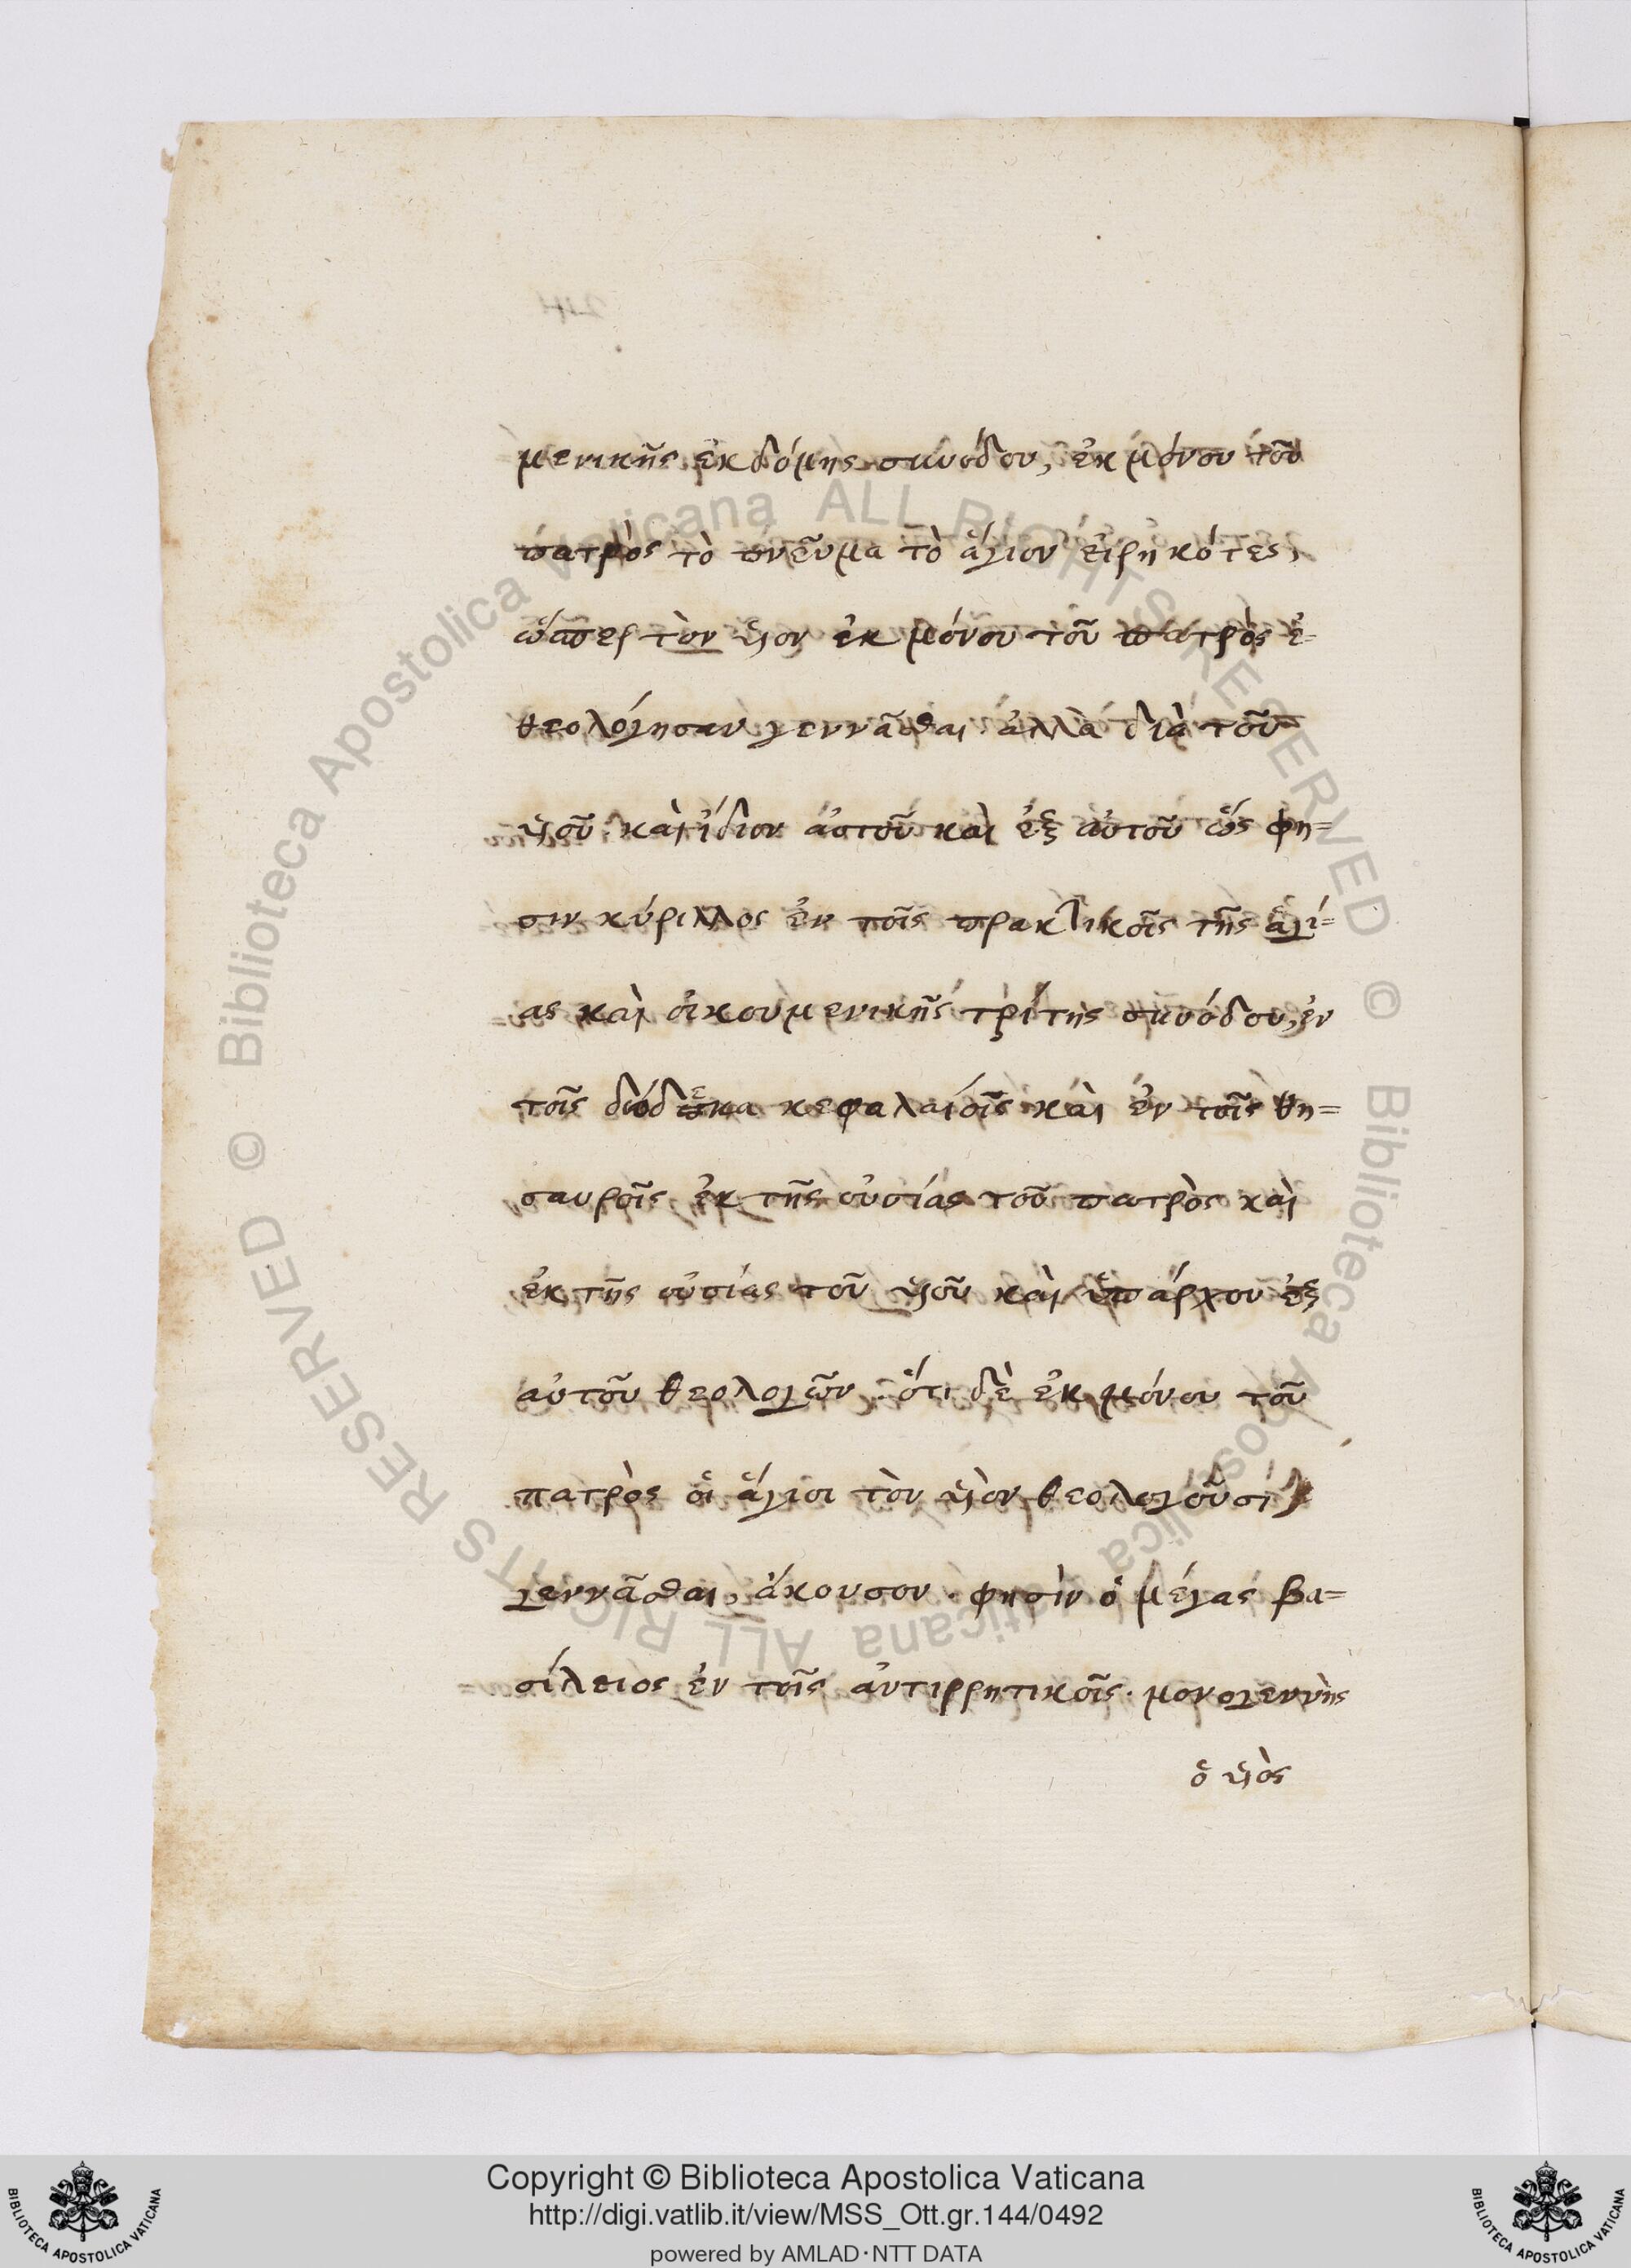 μενικῆς ἑκδόμης συνόδου, ἐκ μόνου τοῦ
πατρὸς τὸ πνεῦμα τὸ ἅγιον εἰρηκότες,
ὥσπερ τὸν υἱον ἐκ μόνου τοῦ πατρὸς ἐ=
θεολόγησαν γεννᾶσθαι ἀλλὰ διὰ τοῦ
υἱοῦ καὶ ἴδιον αὐτοῦ καὶ ἐξ αὐτοῦ ὥς φη=
σιν κύριλλος ἐν τοῖς πρακτικοῖς τῆς ἁγί=
ας καὶ οἰκουμενικῆς τρίτης συνόδου, ἐν
τοῖς δώδεκα κεφαλαίοις καὶ ἐν τοῖς θη=
σαυροῖς ἐκ τῆς οὐσίας τοῦ πατρὸς καὶ
ἐκ τῆς οὐσίας τοῦ υἱοῦ καὶ ὑπάρχον ἐξ
αὐτοῦ θεολογῶν· ὅτι δὲ ἐκ μόνου τοῦ
πατρὸς οἱ ἅγιοι τὸν υἱὸν θεολογοῦσι
γεννᾶσθαι, ἄκουσον· φησὶν ὁ μέγας βα=
σίλειος ἐν τοῖς ἀντιρρητικοῖς· μονογεννὴς
ὁ υἱὸς
© Biblioteca Apostolica Vaticana ALL RIGHTS RESERVED © Biblioteca Apostolica Vaticana ALL RIGHTS RESERVED
BIBLIOTECA APOSTOLICA VATICANA
Copyright © Biblioteca Apostolica Vaticana
http://digi.vatlib.it/view/MSS_Ott.gr.144/0492
powered by AMLAD·NTT DATA
BIBLIOTECA APOSTOLICA VATICANA